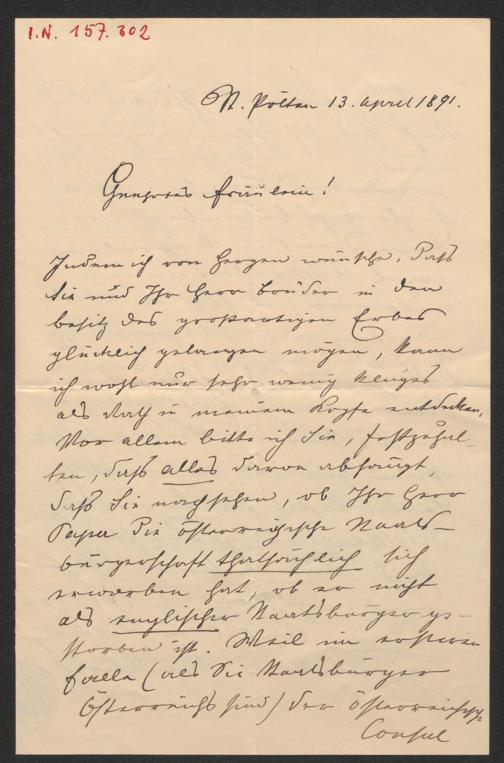 I.N. 157.302
St. Pölten 13. April 1891.
Geehrtes Fräulein!
Indem ich von Herzen wünsche, daß
Sie und Ihr Herr Bruder in den
Besitz des großartigen Erbes
glücklich gelangen mögen, kann
ich wohl nur sehr wenig kluges
als Rath in meinem Kopfe entdecken.
Vor allem bitte ich Sie, festzuhal-
ten, daß alles davon abhängt,
daß Sie nachsehen, ob Ihr Herr
Papa die österreichische Staats-
bürgerschaft thatsächlich sich
erworben hat, ob er nicht
als englischer Staatsbürger ge-
storben ist. Weil im ersteren
Falle (als Sie Staatsbürger
Österreichs sind) der österreichische
Consul